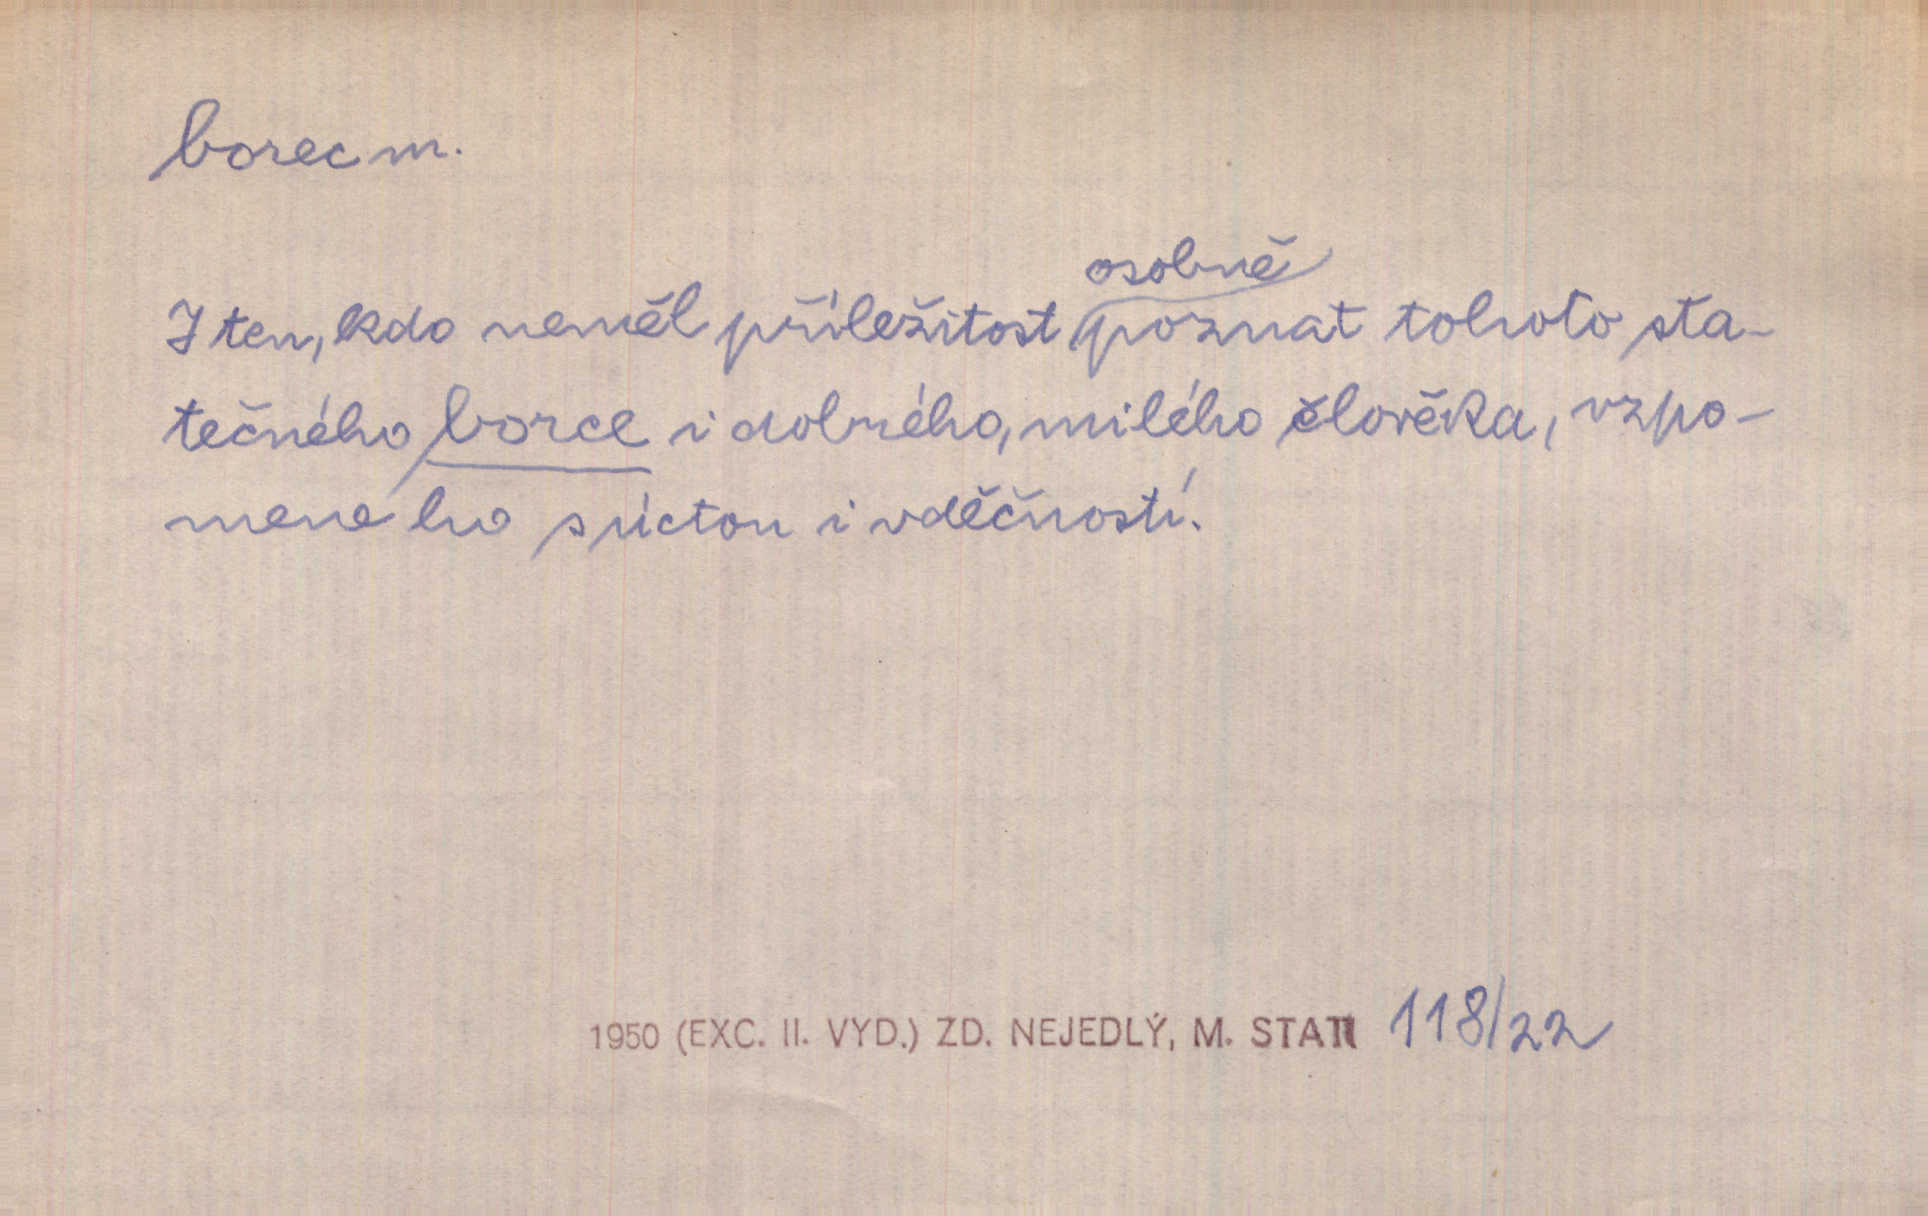 borec m.
I ten, kdo neměl příležitost osobně poznat tohoto sta-
tečného borce i dobrého, milého člověka, vzpo-
mene ho s úctou i vděčností.
1950 (EXC. II. VYD.) ZD. NEJEDLÝ, M. STATI 118/22